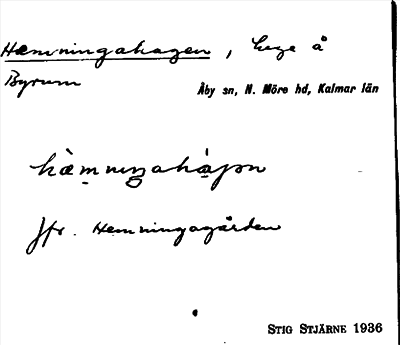 Hemningahagen, hage å
Byrum
Åby sn, N. Möre hd, Kalmar län
hæ̀mniŋahàɡən
Jfr. Hemningagården
STIG STJÄRNE 1936